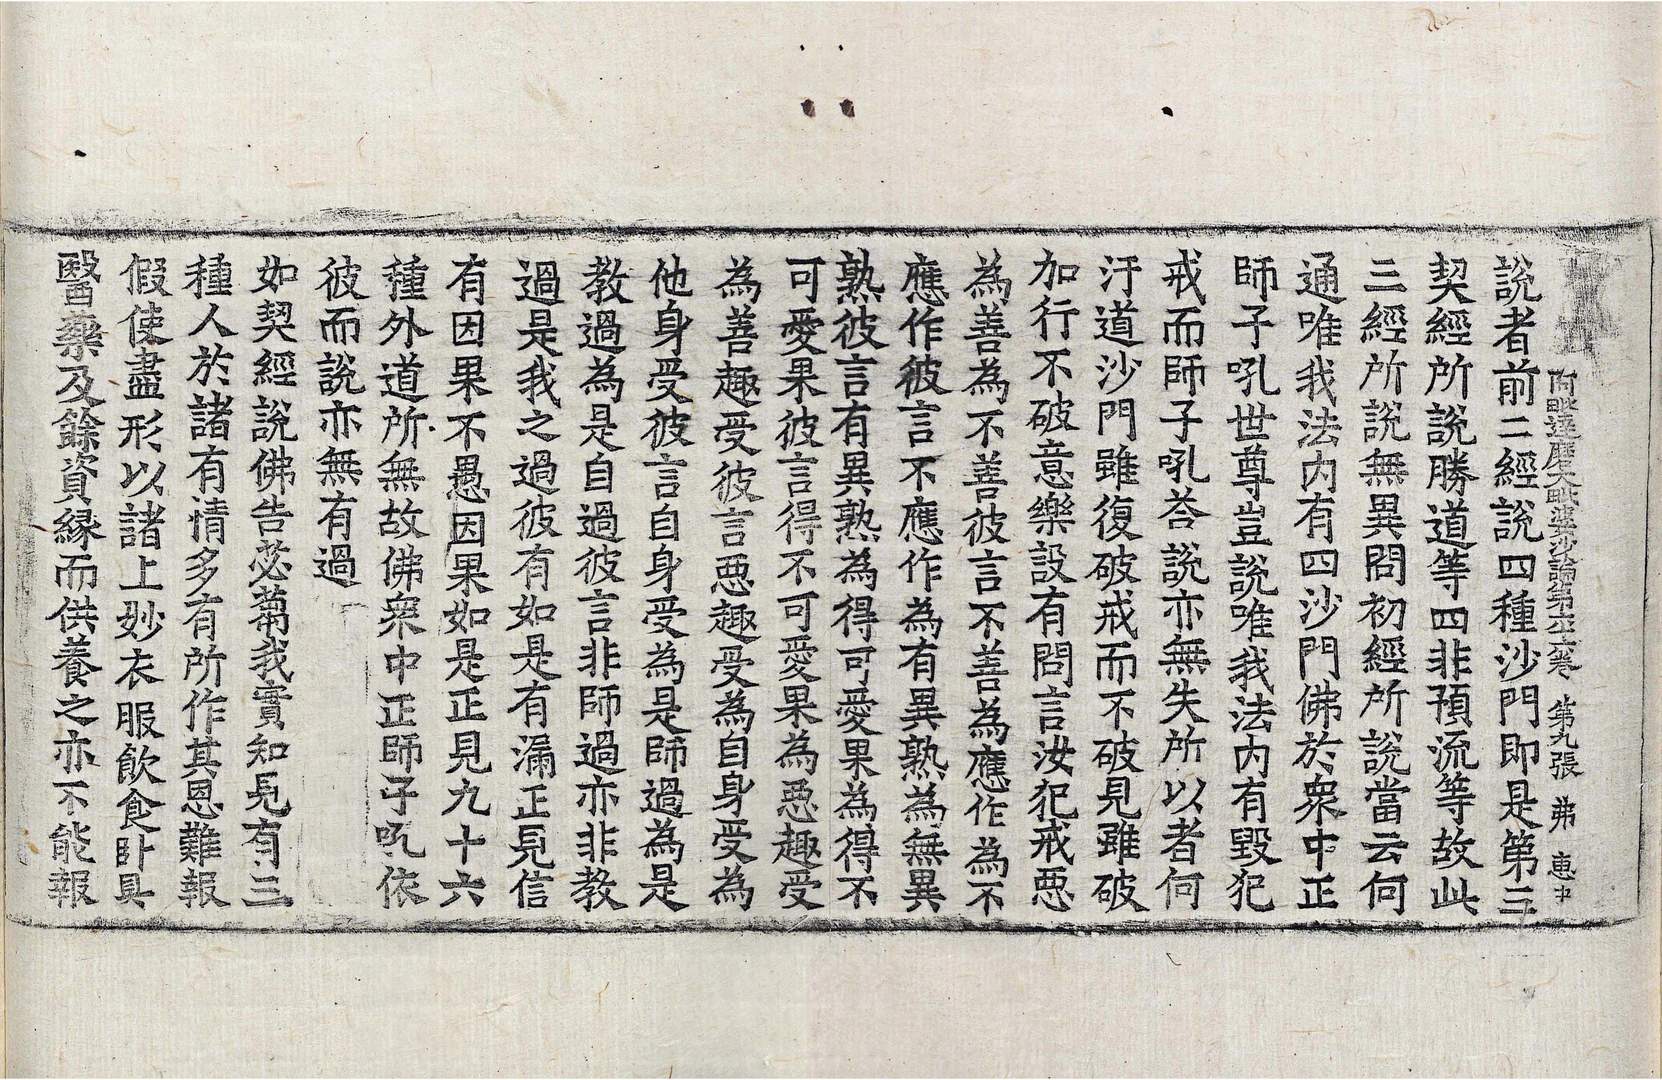 阿毗達磨大毗婆沙論第六十六卷 第九張 弗 惠中
說者前二經說四種沙門即是第三
契經所說勝道等四非預流等故此
三經所說無異問初經所說當云何
通唯我法內有四沙門佛於衆中正
師子吼世尊豈說唯我法內有毀犯
戒而師子吼荅說亦無失所以者何
汙道沙門雖復破戒而不破見雖破
加行不破意樂設有問言汝犯戒惡
為善為不善彼言不善為應作為不
應作彼言不應作為有異熟為無異
熟彼言有異熟為得可愛果為得不
可愛果彼言得不可愛果為惡趣受
為善趣受彼言惡趣受為自身受為
他身受彼言自身受為是師過為是
教過為是自過彼言非師過亦非教
過是我之過彼有如是有漏正見信
有因果不愚因果如是正見九十六
種外道所無故佛衆中正師子吼依
彼而說亦無有過
如契經說佛告苾蒭我實知見有三
種人於諸有情多有所作其恩難報
假使盡形以諸上妙衣服飲食卧具
醫藥及餘資緣而供養之亦不能報